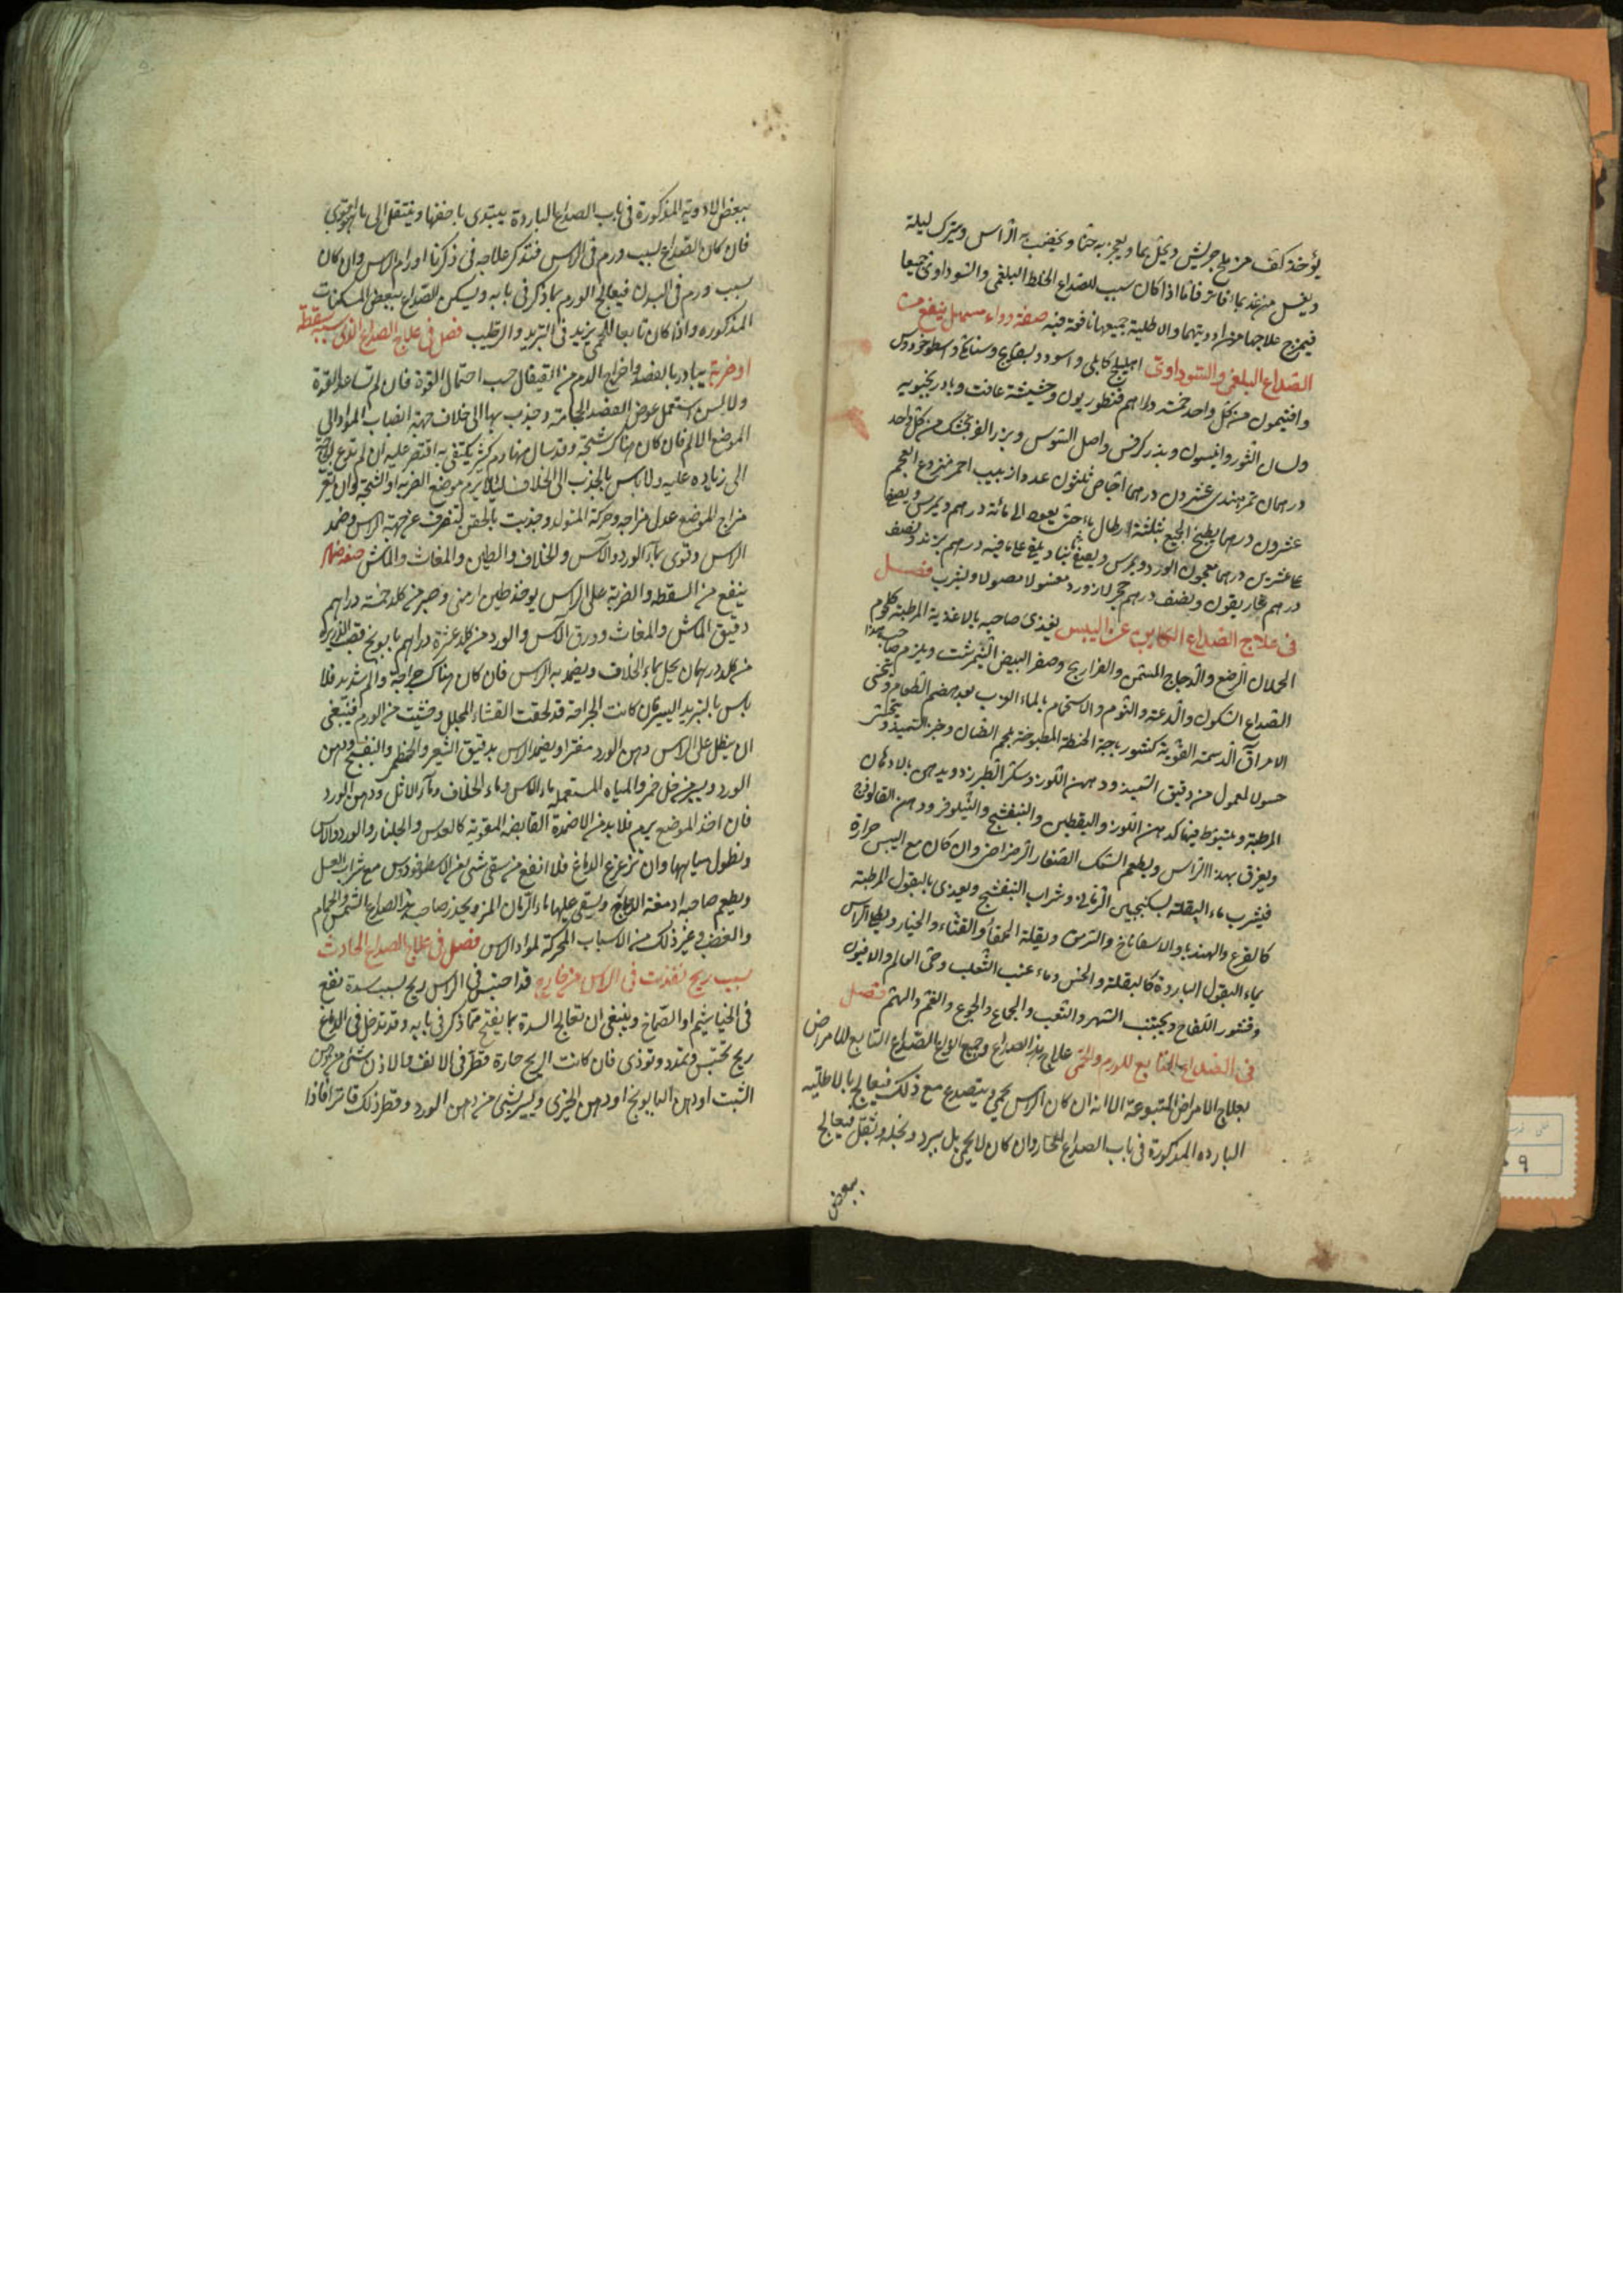 يؤخذ كف من ملح جريش ويحل بما ويعجن به حنا ويخضب به الراس ويترك ليلة
ويغسل من غد بماء فاتر فاما اذا كان سبب الصداع الخلط البلغمى والسوداوى جميعا
فيمزج علاجها من ادويتهما والاطلية جميعها نافعة فيه صفة دواء مسهل ينفع من
الصداع البلغمى والسوداوى اهليلج كابلى واسود وبسفايج وسنامكى واسطوخودوس
وافتيمون من كل واحد خمسة دراهم قنطوريون وحشيشة غافت وبادرنجبويه
ولسان الثور وانيسون وبزر كرفس واصل السوس وبزر الفرنجمشك من كل واحد
درهمان تمر هندى عشرون درهما اجاص ثلثون عددا زبيب احمر منزوع العجم
عشرون درهما يطبخ الجميع بثلثة ارطال ماء حتى يعود الى مائة درهم ويمرس ويصفى
على عشرين درهما معجون الورد ويمرس ويصفى ثانيا ويلقى عليه درهم تربد ونصف
درهم غاريقون ونصف درهم حجر لازورد مغسولا مصولا ويشرب فصل
فى علاج الصداع الكاين عن اليبس يغذى صاحبه بالاغذية المرطبة كلحوم
الحملان الرضع والدجاج المسمن والفراريج وصفر البيض النيمرشت ويلزم صاحب هذا
الصداع السكون والدعة والنوم والاستحمام بالماء العذب بعد هضم الطعام ويتحسى
الامراق الدسمة القوية كشورباجة الحنطة المطبوخة بلحم الضان وخبز السميذ ويتخذ
حسو المعمول من دقيق السميذ ودهن اللوز وسكر الطبرزد ويدهن بالادهان
المرطبة ويتسعط فيها كدهن اللوز واليقطين والبنفسج والنيلوفر ودهن القالوذج
ويغرق بهذا الراس ويطعم السمك الصغار الرضراضى وان كان مع اليبس حرارة
فيشرب ماء البقلة بسكنجبين الرمانى وشراب البنفسج ويغذى بالبقول المرطبة
كالقرع والهندبا والاسفاناخ والسرمق وبقلة الحمقاء والقثاء والخيار ويطلى الراس
بماء البقول الباردة كالبقلة والخس وماء عنب الثعلب وحى العالم والافيون
وقشور اللفاح ويجتنب السهر والتعب والجماع والجوع والغم والهم فصل
فى الصداع التابع للورم والحمى علاج هذا الصداع وجميع انواع الصداع التابع للامراض
بعلاج الامراض المتبوعة الا انه ان كان الراس يحمى ويتصدع مع ذلك فيعالج بالاطلية
الباردة المذكورة فى باب الصداع الحار وان كان لا يحمى بل يبرد وثقل فيعالج
ببعض
ببعض الادوية المذكورة فى باب الصداع الباردة يبتدى باخفها وينتقل الى ما هو اقوى
فان كان الصداع لسبب ورم فى الراس فنذكر علاجه فى ذكرنا اورام الراس وان كان
بسبب ورم فى البدن فيعالج الورم بما ذكر فى بابه ويسكن الصداع ببعض المسكنات
المذكوره واذا كان تابعا للحمى يزيد فى التبريد والترطيب فصل فى علاج الصداع الذى سببه سقطة
او ضربة يبادر بالفصد واخراج الدم من القيفال حسب احتمال القوة فان لم تساعد القوة
ولا السن استعمل عوض الفصد الحجامة وجذب بها الى خلاف جهة انصباب المواد الى
الموضع الالم فان كان هناك شجة وقد سال منها دم كثير يكتفى به اقتصر عليه ان لم تدع الحاجة
الى زياده عليه ولا باس بالجذب الى الخلاف لئلا يرم موضع الضربة او الشجة وان تغير
مزاج الموضع عدل مزاجه وحركة المتولد وجذبت بالحقن لتصرف عن جهة الراس وضمد
الراس وقوى بماء الورد والاس والخلاف والطين والمغاث والماش صفة ضماد
ينفع من السقطه والضربة على الراس يوخذ طين ارمنى وصبر من كل خمسة دراهم
دقيق الماش والمغاث وورق الاس والورد من كل عشرة دراهم بابونج قصب الذريرة
من كل درهمان يحل بماء الخلاف ويضمد به الراس فان كان هناك جراحة والم شديد فلا
باس بالتبريد اليسير فان كانت الجراحة قد لحقت الغشاء المجلل وخشيت من الورم فينبغى
ان ينطل على الراس دهن الورد مفترا ويضمد الراس بدقيق الشعير والخطمى والبنفسج ودهن
الورد ويسير من خل خمر والمياه المستعملة ماء الاس وماء الخلاف وماء الاثل ودهن الورد
فان اخذ الموضع يرم فلا بد من الاضمدة القابضة المقوية كالعدس والجلنار والورد والاس
ونطول مياهها وان تزعزع الدماغ فلا انفع من سقى شئ من الاسطوخودوس مع شراب العسل
ويطعم صاحبه ادمغة الدجاج ويسقى عليها ماء الرمان المز ويحذر صاحب هذا الصداع الشمس والحمام
والغضب وغير ذلك من الاسباب المحركة لمواد الراس فصل فى علاج الصداع الحادث
بسبب ريح نفذت فى الراس من خارج قد احتبس فى الراس ريح بسبب سدة تقع
فى الخياشيم او الصماخ وينبغى ان تعالج السدة بما يفتح مما ذكر فى بابه وقد تدخل فى الدماغ
ريح تحتبس وتمدد وتوذى فان كانت الريح حارة قطر فى الانف والاذن شئ من دهن
الشبت او دهن البابونج او دهن الخيرى ويسير شئ من دهن الورد وقطر ذلك فاترا فاذا